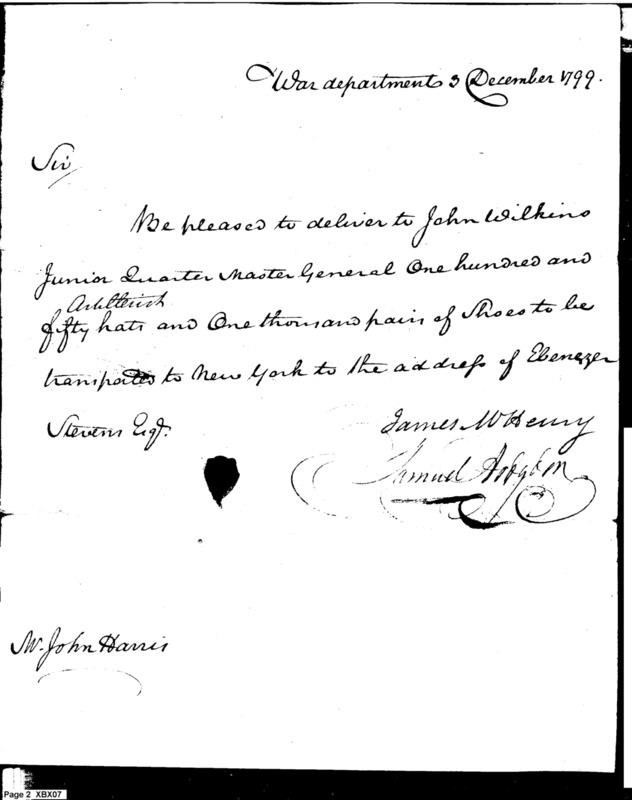 War department 3 December 1799.
Sir
Be pleased to deliver to John Wilkins
Junior Quarter Master General One hundred and
Artillerists
fifty hats and One thousand pairs of Shoes to be
transported to New York to the address of Ebenezer
Stevens Esqr.
James McHenry
Samuel Hodgdon
Mr. John Harris
Page 2 XBX07